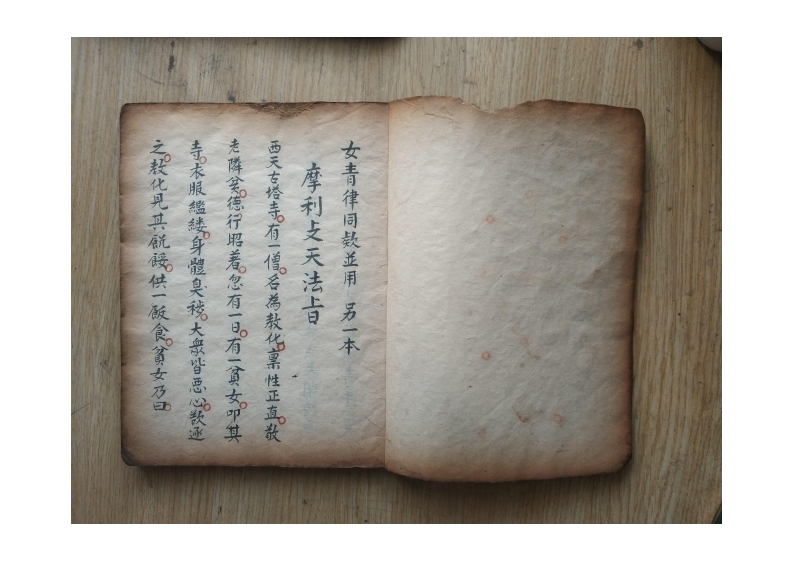 女青律同欵並用 另一本
摩利支天法旨
西天古塔寺。有一僧。名為教化。稟性正直。敬
老隣貧。德行昭著。忽有一日。有一貧女。叩其
寺。衣服繿縷。身體臭穢。大衆皆惡心。欲逐
之。教化見其飢餒。供一飯食。貧女乃曰。